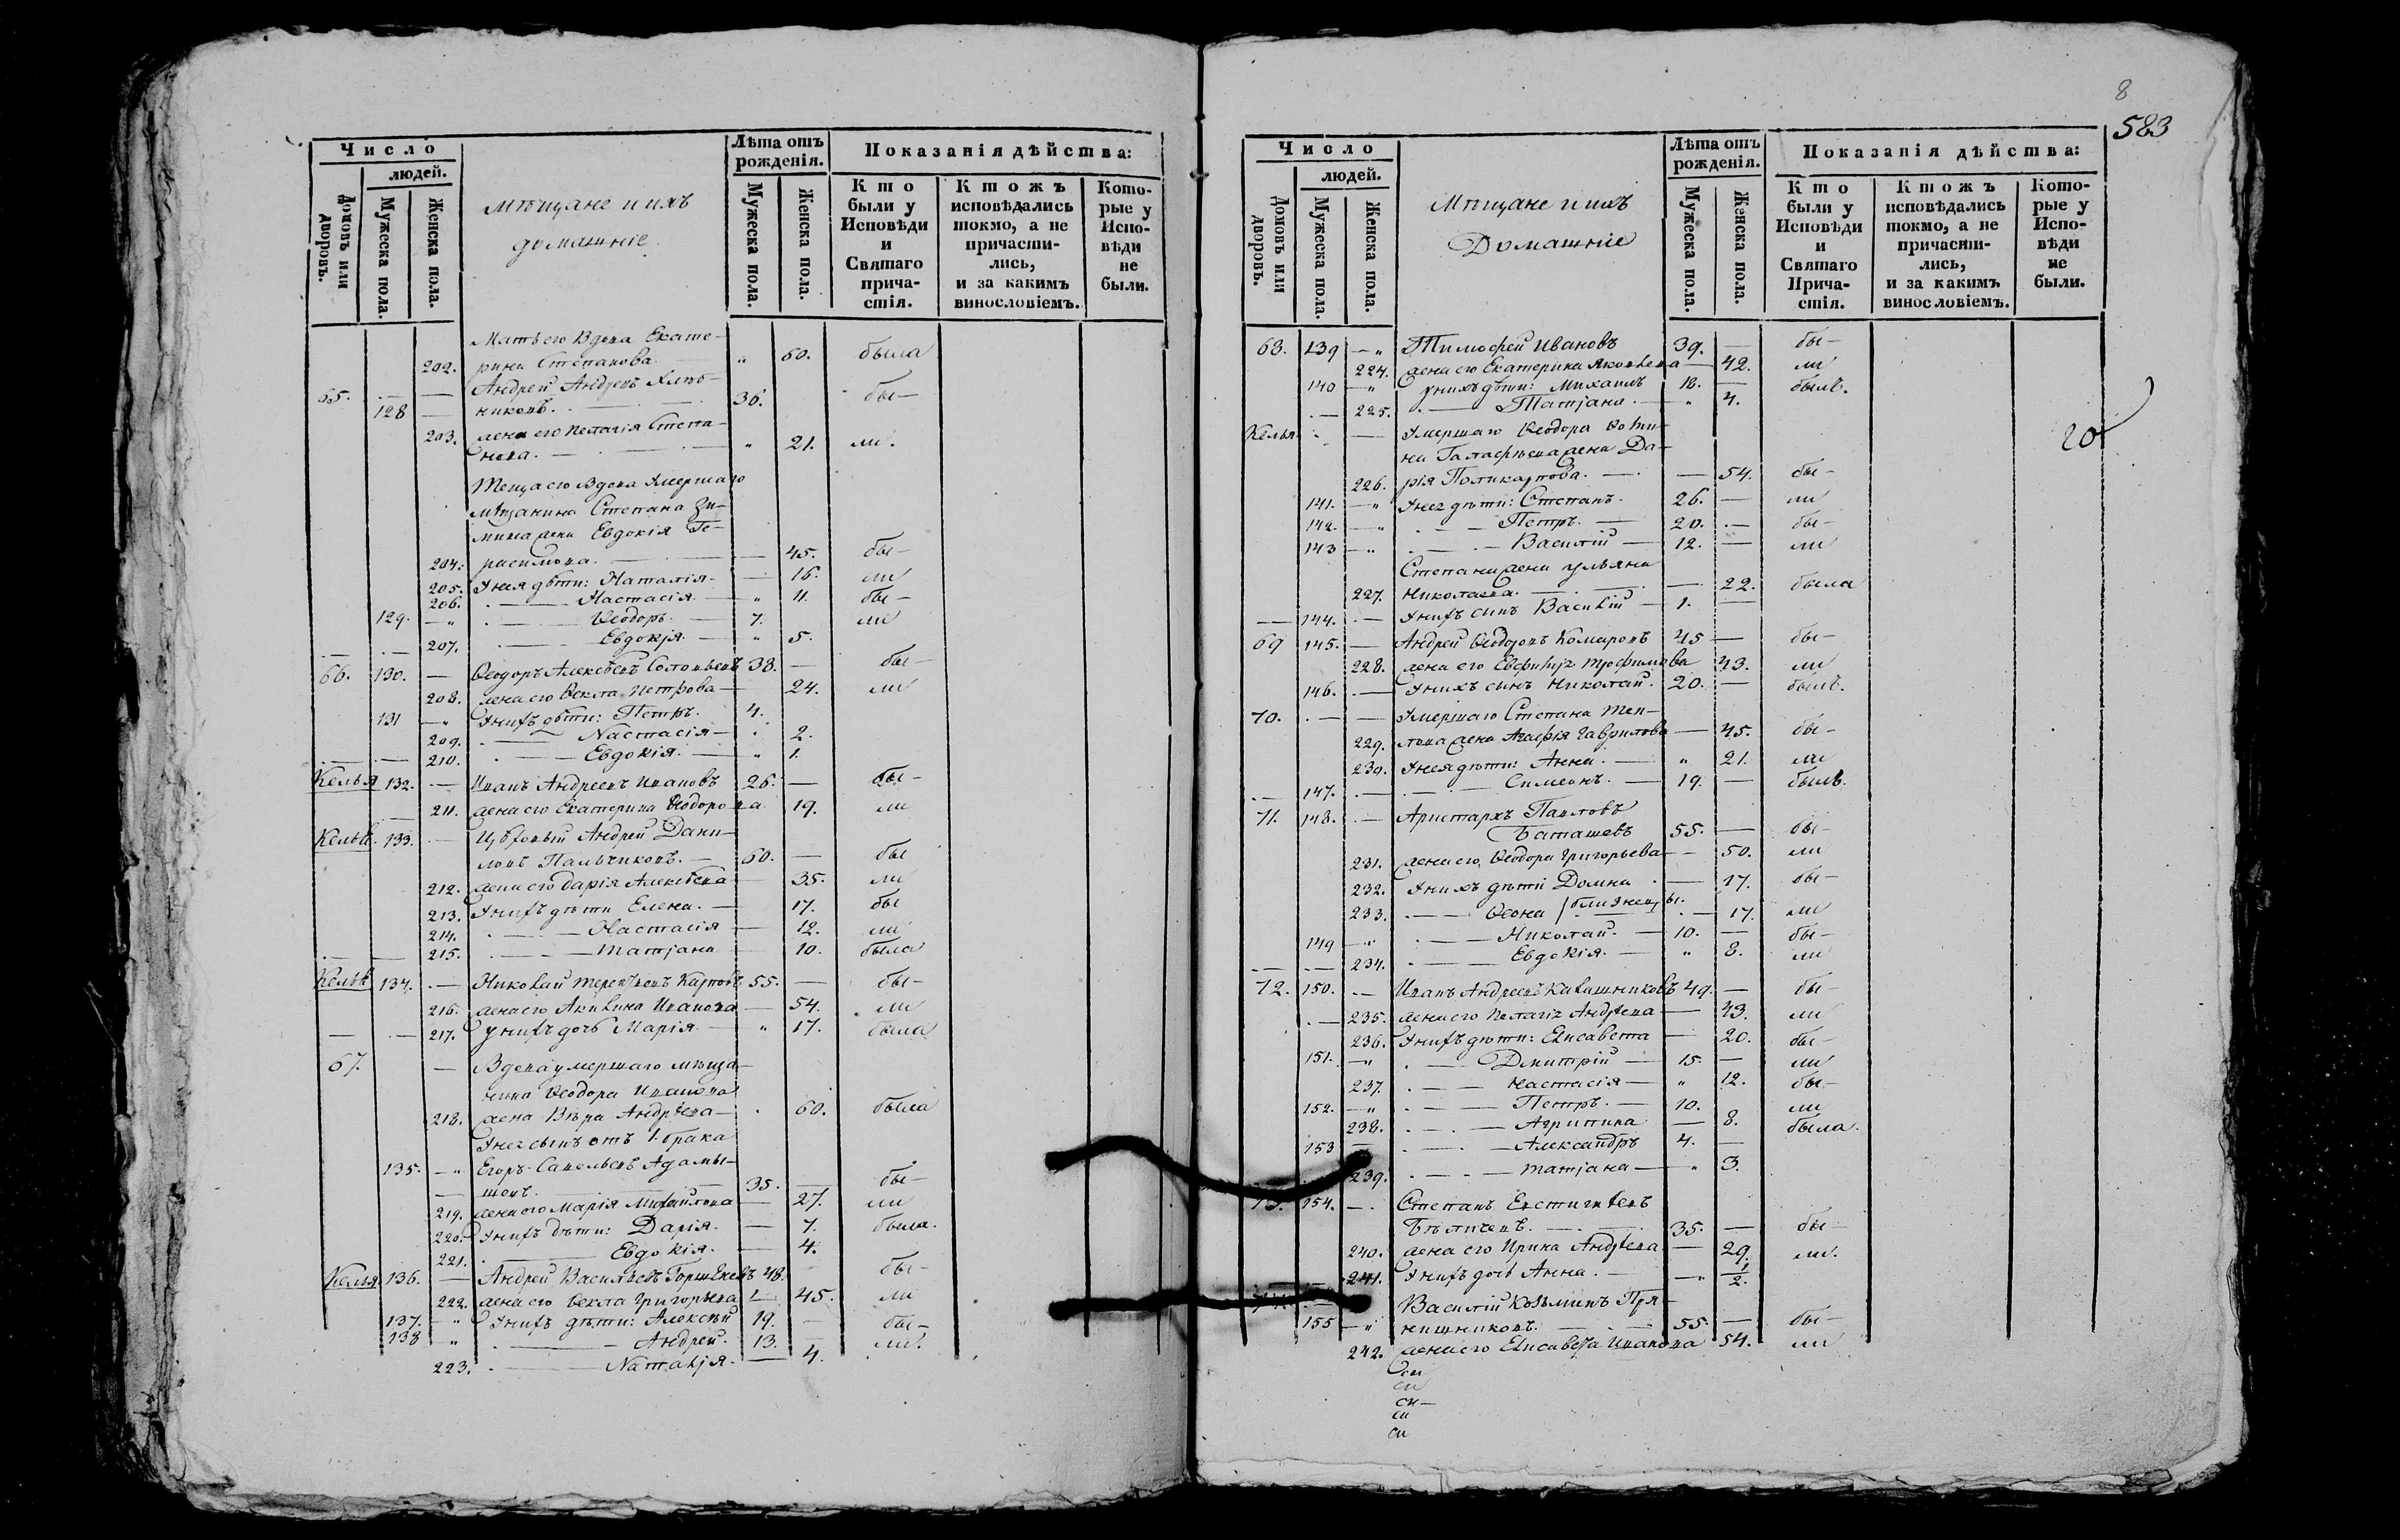 Число
людей.
Домовъ или дворовъ.
Мужеска пола.
Женска пола.
Мѣщане и ихъ
домашніе.
Лѣта отъ
рожденія.
Мужеска пола.
Женска пола.
Показанія дѣйства:
Кто были у Исповѣди и Святаго причастія.
Ктожъ исповѣдались токмо, а не причастились, и за какимъ винословіемъ.
Которые у Исповѣди не были.
Мать его вдова Екате-
202. рина Степанова. " 60. была
65. Андрей Андреевъ
128 — никовъ. 36. бы-
203. жена его Пелагія Степа-
нова. — " 21. ли.
Теща его вдова умершаго
мѣщанина Степана Зи-
мина жена Евдокія Ге-
204. расимова. — 45. бы-
205. У нея дѣти: Наталія — 16. ли
206. Настасія — " 11. бы-
129. — " Ѳеодоръ — 7. ли
207. Евдокія — " 5.
66. 130. — Ѳеодоръ Алексѣевъ Соловьевъ 38. — бы-
208. жена его Ѳекла Петрова — 24. ли
131 — " У нихъ дѣти: Петръ. 4.
209. Настасія — 2.
210. Евдокія. — " 1.
Келья 132. — Иванъ Андреевъ Ивановъ 26. — бы-
211. жена его Екатерина Ѳеодорова 19. ли
Келья. 133. — Цѣховый Андрей Дани-
ловъ Пальчиковъ. — 60. — бы
212. жена его Дарія Алексѣева — 35. ли
213. У нихъ дѣти Елена. — 17. бы
214. Настасія — 12. ли
215. Татіана 10. была
Келья 134. — Николай Терентьевъ Карповъ 55. — бы-
216. жена его Акилина Иванова — 54. ли
217. У нихъ дочь Марія — " 17. была
67. — Вдова умершаго мѣща-
нина Ѳеодора Иванова
218. жена Вѣра Андреева — 60. была
У нея сынъ отъ 1. брака
135. — " Егоръ Савельевъ Адамы-
шевъ. 35. — бы-
219. жена его Марія Михайлова — 27. ли
220. У нихъ дѣти: Дарія. — 7. была.
221. Евдокія. — 4.
Келья 136. — Андрей Васильевъ Горшеневъ 48. бы-
222. жена его Ѳекла Григорьева — 45. ли
137. — " У нихъ дѣти: Алексѣй 19. — бы-
138 " Андрей. 13. — ли.
223. Наталія. — 4.
8
583
Число
людей.
Домовъ или дворовъ.
Мужеска пола.
Женска пола.
Мѣщане и ихъ
Домашніе
Лѣта отъ
рожденія.
Мужеска пола.
Женска пола.
Показанія дѣйства:
Кто были у Исповѣди и Святаго Причастія.
Ктожъ исповѣдались токмо, а не причастились, и за какимъ винословіемъ.
Которые у Исповѣди не были.
68. 139 — " Тимофей Ивановъ 39. — бы-
224. жена его Екатерина Яковлева — 42. ли
140 — " У нихъ дѣти: Михаилъ 18. — былъ.
225. Татіана. — " 4.
Келья — Умершаго Ѳеодора
жена Да-
226. рія Поликарпова. — 54. бы-
141. — " У нея дѣти: Степанъ. 26. — ли
142. — " Петръ. — 20. — бы-
143 — " Василій — 12. — ли
Степана жена Ульяна
227. Николаева. — 22. была
144. — У нихъ сынъ Василій — 1. —
69 145. — Андрей Ѳеодоровъ Комаровъ 45 — бы-
228. жена его Евфимія Трофимова 43. ли
146. — У нихъ сынъ Николай. 20. — былъ.
70. — Умершаго Степана Теп-
229. лова жена Агафія Гаврилова — 45. бы-
230. У нея дѣти: Анна. — " 21. ли
147. Симеонъ. — 19. — былъ.
71. 148. — Аристархъ Павловъ
Баташевъ 55. — бы-
231. жена его Ѳеодора Григорьева — 50. ли
232. У нихъ дѣти Домна — 17. бы-
233. Ѳеона / близнецы. — 17. ли
149 — " Николай. — 10. — бы-
234. Евдокія. — " 8. ли
72. 150. — Иванъ Андреевъ Калашниковъ 49. — бы-
235. жена его Пелагія Андреева — 43. ли
236. У нихъ дѣти: Елисавета — 20. бы-
151. — " Дмитрій — 15. — ли
237. Настасія — " 12. бы-
152. — " Петръ. — 10. ли
238. Агрипина — 8. была.
153 — Александръ 4. —
239. Татіана — " 3.
73. 154. — Степанъ Евстигнѣевъ
Бѣляевъ. — 35. — бы-
240. жена его Ирина Андреева — 29. ли.
241. У нихъ дочь Анна. — " 1/2.
74. — Василій Козьминъ Пря-
155 — " нишниковъ. — 55. — бы-
242. жена его Елисавета Иванова 54. ли
20